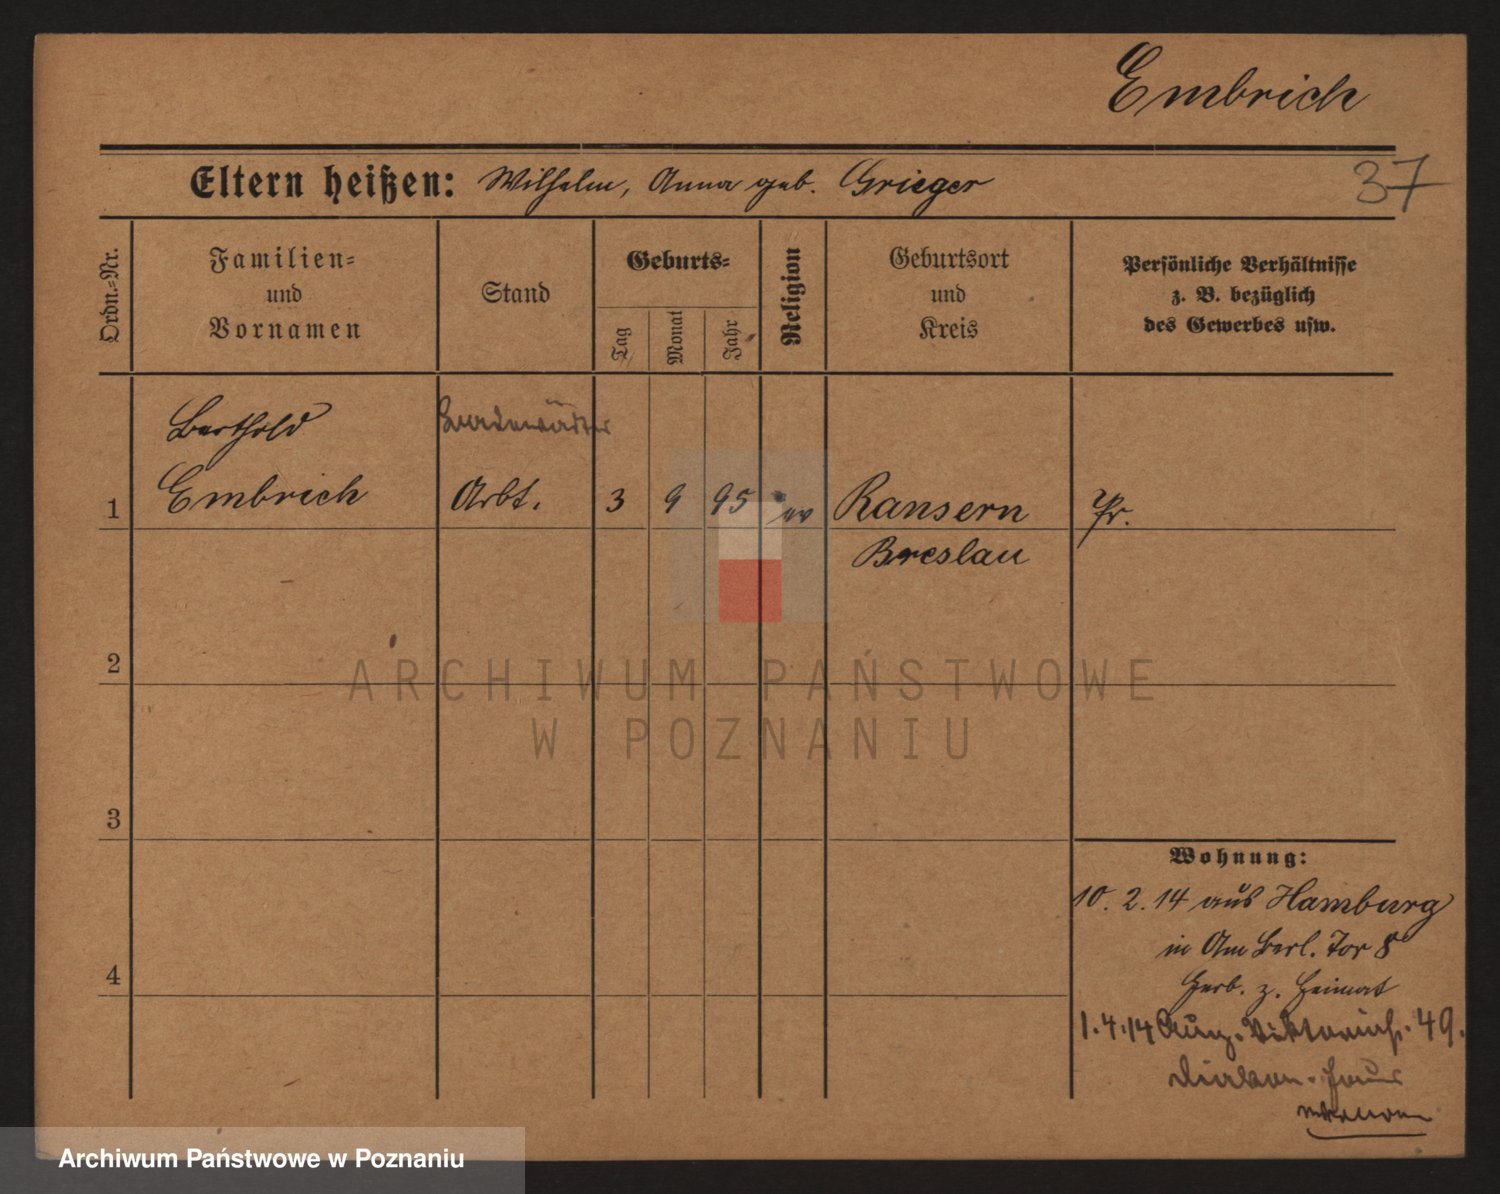 Embrich
Eltern heißen: Wilhelm, Anna geb. Grieger
37
Ordn.=Nr.
Familien=
und
Vornamen
Stand
Geburts=
Tag
Monat
Jahr
Religion
Geburtsort
und
Kreis
Persönliche Verhältnisse
z. B. bezüglich
des Gewerbes usw.
Berthold
1 Embrich Arbt. 3 9 95 ev Ransern Pr.
Breslau
2
ARCHIWUM PAŃSTWOWE
W POZNANIU
3
Wohnung:
10. 2. 14 aus Hamburg
in Am Berl. Tor 8
Herb. z. Heimat
4
1.4.14 Aug. Viktoriastr. 49.
Diakon. Haus
Archiwum Państwowe w Poznaniu